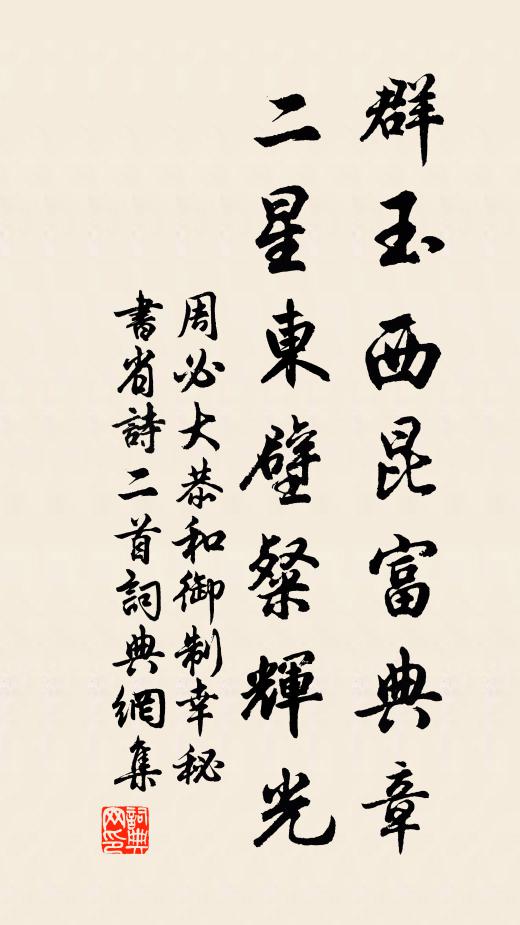 群玉西昆富典章
二星東壁粲輝光
周必大恭和御制幸秘
書省詩二首詞典網集
詞典
網印